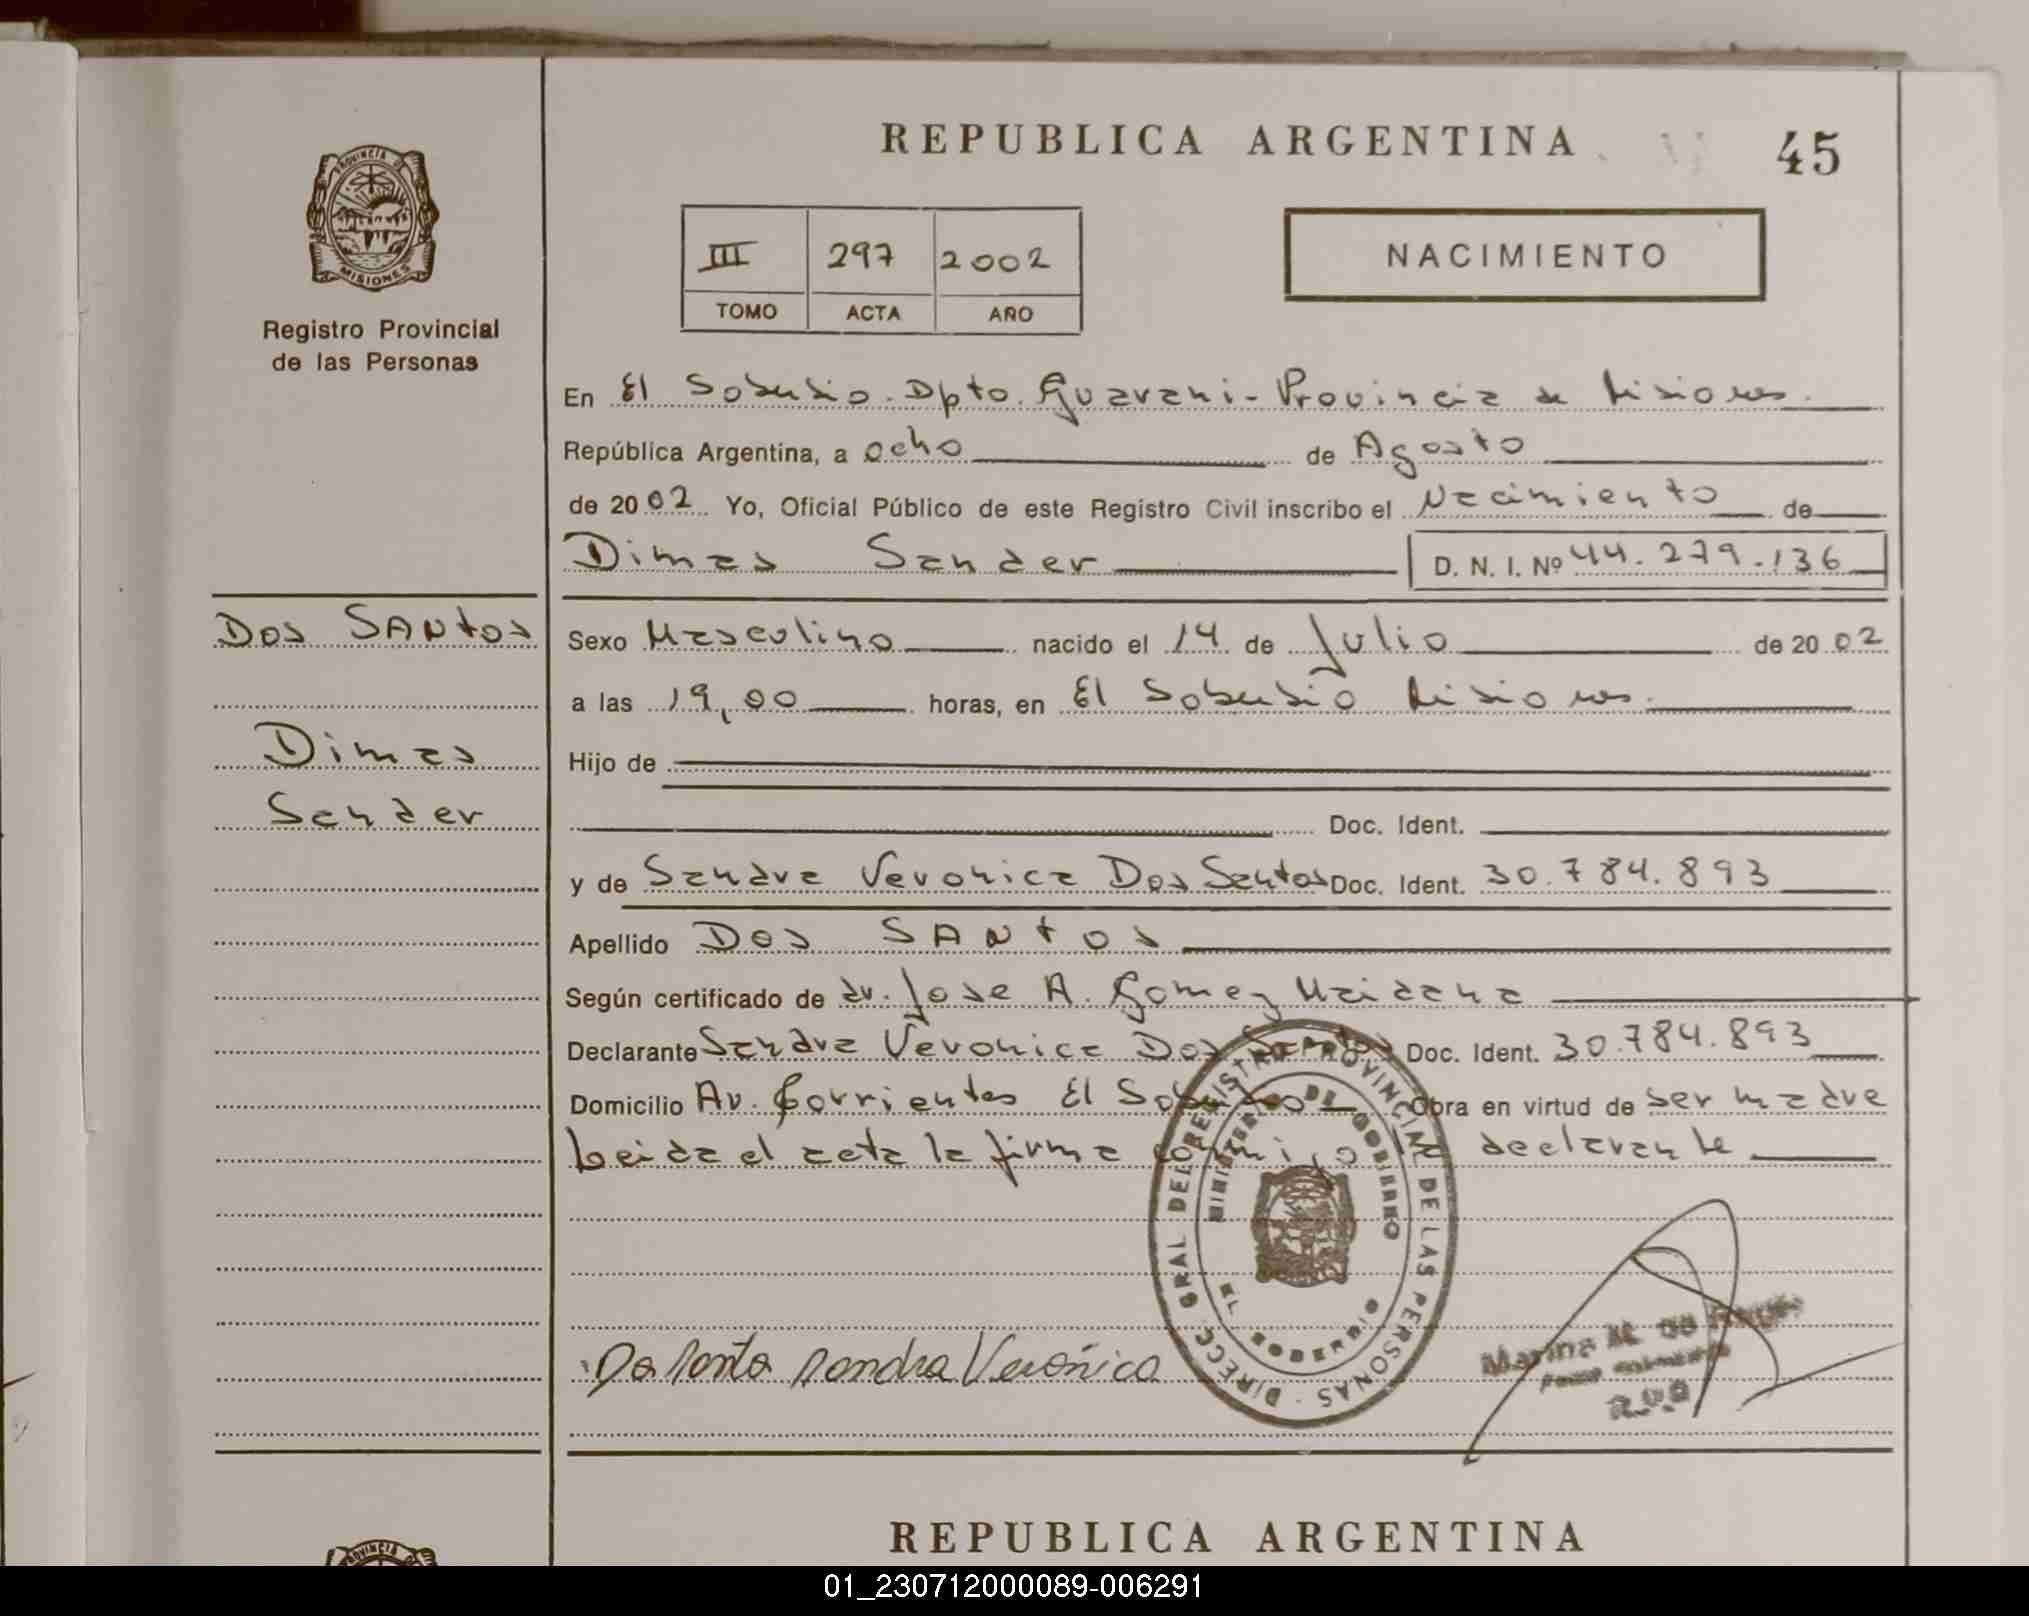 REPUBLICA ARGENTINA
45
PROVINCIA DE
MISIONES
Registro Provincial
de las Personas
III 297 2002
TOMO ACTA AÑO
NACIMIENTO
En El Soberbio. Dpto. Guarani - Provincia de Misiones.
República Argentina, a ocho de Agosto
de 2002 Yo, Oficial Público de este Registro Civil inscribo el Nacimiento de
Dimas Sander D. N. I. Nº 44.279.136
Dos SANtos
Dimas
Sander
Sexo Masculino nacido el 14 de Julio de 2002
a las 19,00 horas, en El Soberbio Misiones.
Hijo de
Doc. Ident.
y de Sandra Veronica Dos Santos Doc. Ident. 30.784.893
Apellido Dos SANtos
Según certificado de dr. Jose A. Gomez Maidana
Declarante Sandra Veronica Dos Santos Doc. Ident. 30.784.893
Domicilio Av. Corrientes El Soberbio Obra en virtud de ser madre
Leida el acta la firma conmigo la declarante
DIRECC. GRAL DEL REGISTRO PROVINCIAL DE LAS PERSONAS
MINISTERIO DE GOBIERNO
EL SOBERBIO
Dos Santos Sandra Verónica
Marina M.
REPUBLICA ARGENTINA
PROVINCIA
01_230712000089-006291